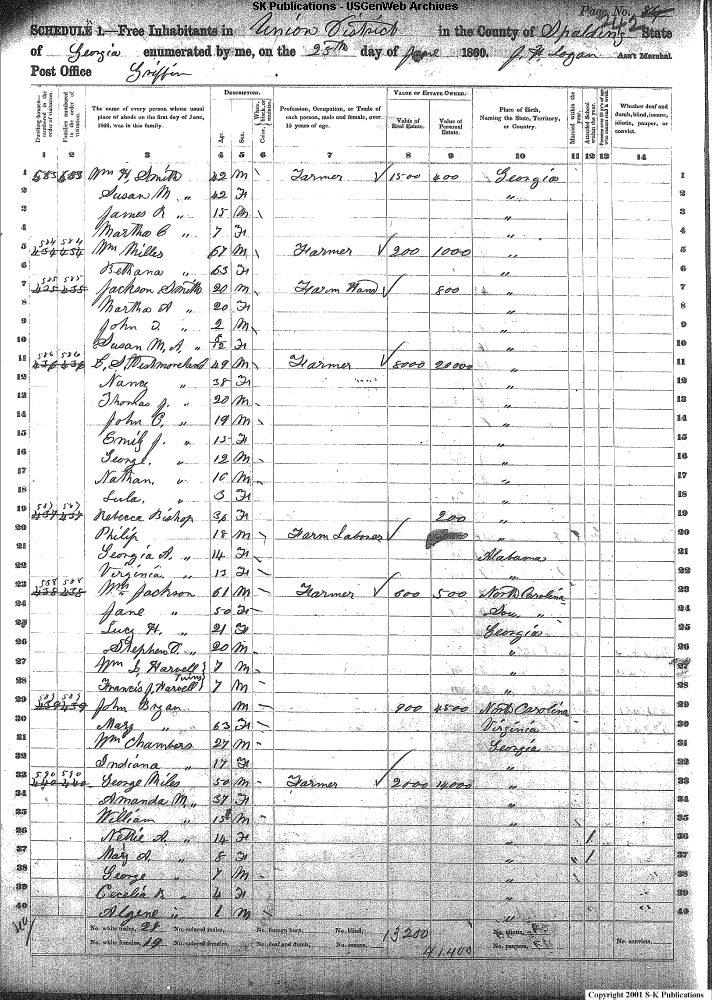 SK Publications - USGenWeb Archives
Page No.
SCHEDULE 1.—Free Inhabitants in Union District in the County of Spalding State
of Georgia enumerated by me, on the 25th day of June 1860. J. H. Logan Ass't Marshal.
Post Office Griffin
Dwelling-houses— numbered in the order of visitation.
Families numbered in the order of visitation.
The name of every person whose usual place of abode on the first day of June, 1860, was in this family.
DESCRIPTION.
Age.
Sex.
Color, White, black, or mulatto.
Profession, Occupation, or Trade of each person, male and female, over 15 years of age.
VALUE OF ESTATE OWNED.
Value of Real Estate.
Value of Personal Estate.
Place of Birth, Naming the State, Territory, or Country.
Married within the year.
Attended School within the year.
Whether deaf and dumb, blind, insane, idiotic, pauper, or convict.
1 2 3 4 5 6 7 8 9 10 11 12 13 14
1 583 583 Wm H. Smith 42 M \ Farmer √ 1500 400 Georgia 1
2 Susan M " 42 F " 2
3 James R " 15 M \ " 3
4 Martha C " 7 F " 4
5 584 584 Wm Milles 67 M \ Farmer √ 200 1000 " 5
6 Bethana " 63 F " 6
7 585 585 Jackson Smith 20 M \ Farm Hand √ 800 " 7
8 Martha A " 20 F " 8
9 John " 2 M \ " 9
10 Susan M. A. " F " 10
11 586 586 Westmoreland 49 M \ Farmer √ 8000 20000 " 11
12 Nancy " 38 F " 12
13 Thomas J. " 20 M " 13
14 John C. " 19 M " 14
15 Emily J. " 15 F " 15
16 George. " 12 M " 16
17 Nathan. " 10 M " 17
18 Lula. " 3 F " 18
19 587 587 Rebecca Bishop 36 F 200 " 19
20 Philip 18 M Farm Laborer √ " 20
21 Georgia A. " 14 F Alabama 21
22 Virginia. " 13 F " 22
23 588 588 Wm Jackson 61 M Farmer √ 600 500 North Carolina 23
24 Jane " 50 F Sou. " 24
25 Lucy H. " 21 F Georgia 25
26 Stephen " 20 M " 26
27 Wm Harvell 7 M " 27
28 Francis J. Harvell } Twins 7 M " 28
29 589 589 John Bryan M 900 4500 North Carolina 29
30 Mary " 63 F Virginia 30
31 Wm Chambers 27 M Georgia 31
32 Indiana " 17 F " 32
33 590 590 George Niles 50 M Farmer √ 2000 14000 " 33
34 Amanda M. " 37 F " 34
35 William " M " 35
36 Nettie A. " 14 F " / 36
37 Mary A. " 8 F " / 37
38 George " 7 M " 38
39 Cecelia " 4 F " 39
40 Algene " 1 M " 40
No. white males, 21 No. colored males, No. foreign born, No. blind, 13200 No. idiotic,
No. white females, 19 No. colored females, No. deaf and dumb, No. insane, 41400 No. paupers, No. convicts,
Copyright 2001 S-K Publications